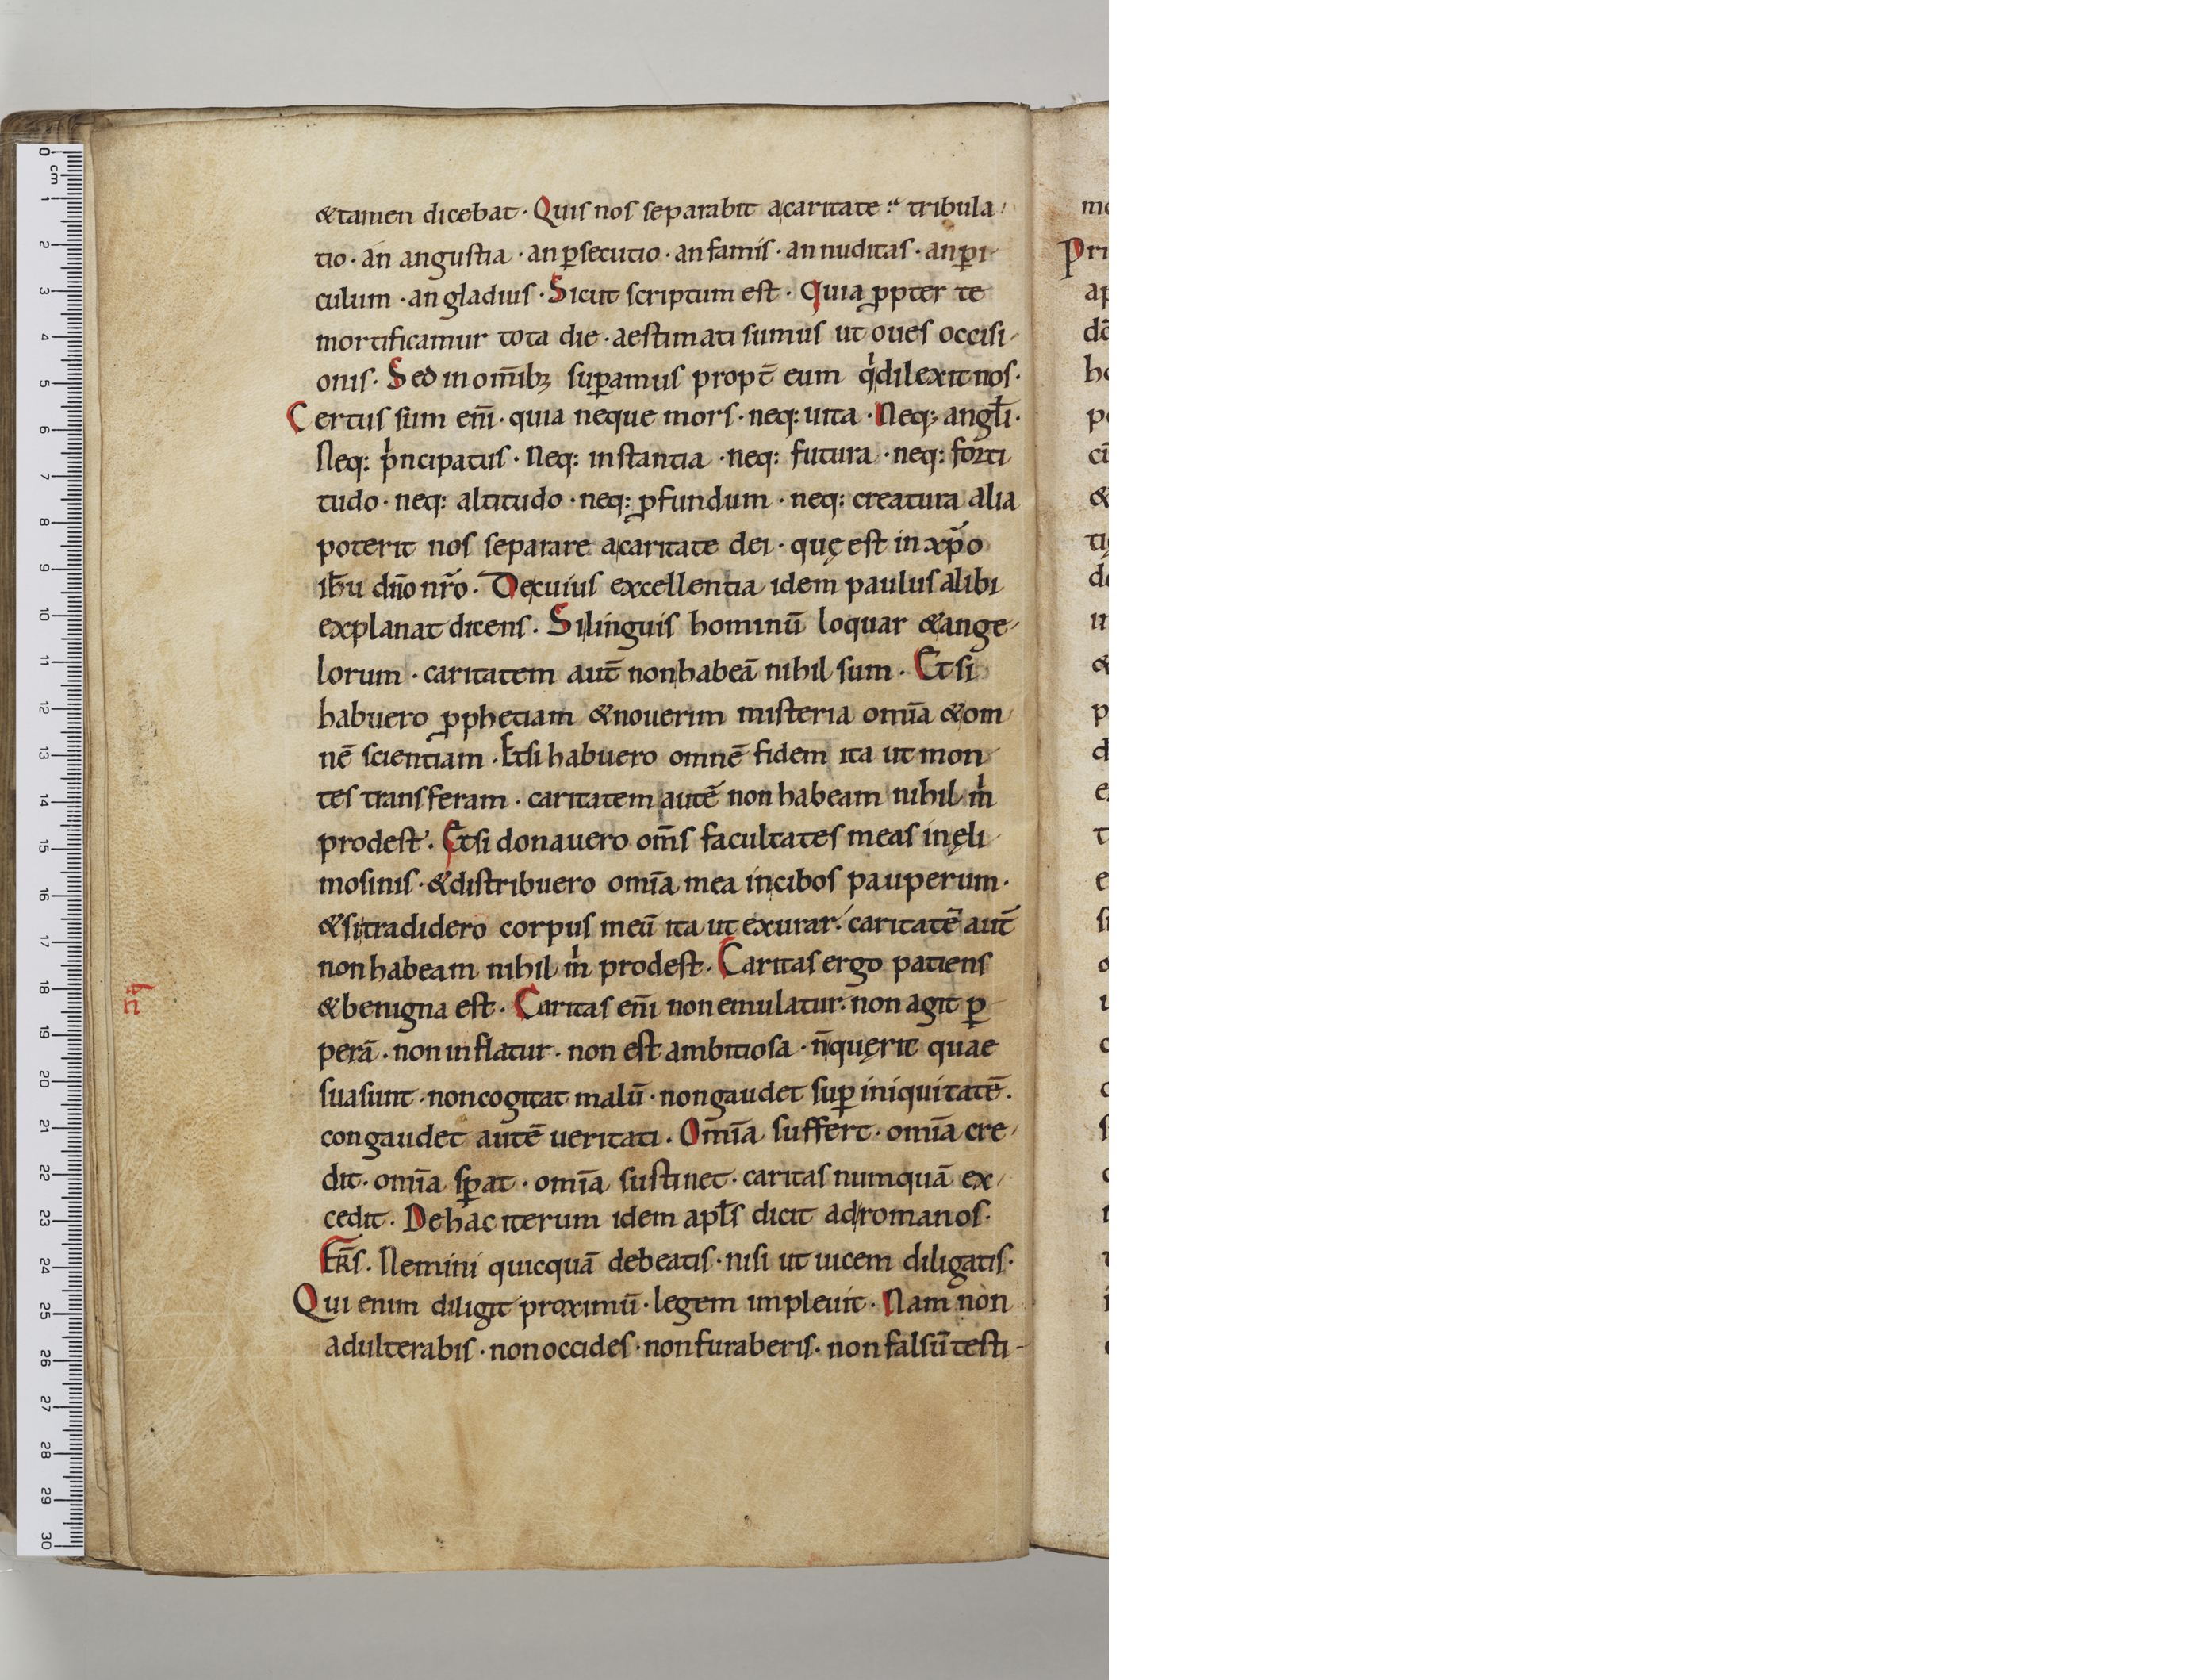 &tamen dicebat · Quis nos separabit acaritate ؟ tribula-
tio · an angustia · an ꝑsecutio · an famis · an nuditas · an ꝑi-
culum · an gladius · Sicut scriptum est · Quia ꝓpter te
mortificamur tota die · aestimati sumus ut oues occisi-
onis · Sed in om̄ibꝫ suꝑamus propt̄ eum qͥ dilexit nos ·
Certus sum em̄ · quia neque mors · neq: uita · Neq; angl̄i ·
Neq: pͥncipatus · Neq: instantia · neq: futura · neq: forti
tudo · neq: altitudo · neq: ꝓfundum · neq: creatura alia
poterit nos separare acaritate dei · quę est in xp̄o
ih̄u dn̄o nr̄o · Decuius excellentia idem paulus alibi
explanat dicens · Si linguis hominū loquar &ange-
lorum · caritatem aut̄ non habeā nihil sum · Et si
habuero ꝓphetiam &nouerim misteria omīa &om-
nē scientiam · Etsi habuero omnē fidem ita ut mon-
tes transferam · caritatem autē non habeam nihil mͥ
prodest · Etsi donauero om̄s facultates meas in ęli-
mosinis · &distribuero omīa mea in cibos pauperum ·
&si tradidero corpus meū ita ut exurar · caritatē aut̄
non habeam nihil mͥ prodest · Caritas ergo patiens
&benigna est · Caritas em̄ non emulatur · non agit ꝑ-
perā · non inflatur · non est ambitiosa · n̄ quęrit quae
suasunt · non cogitat malū · non gaudet suꝑ iniquitatē ·
congaudet autē ueritati · Om̄ia suffert · omīa cre-
dit · omīa sꝑat · omīa sustinet · caritas numquā ex-
cedit · De hac iterum idem apl̄s dicit ad romanos ·
FR̄S · Nemini quicquā debeatis · nisi ut uicem diligatis ·
Qui enim diligit proximū · legem impleuit · Nam non
adulterabis · non occides · non furaberis · non falsū testi-